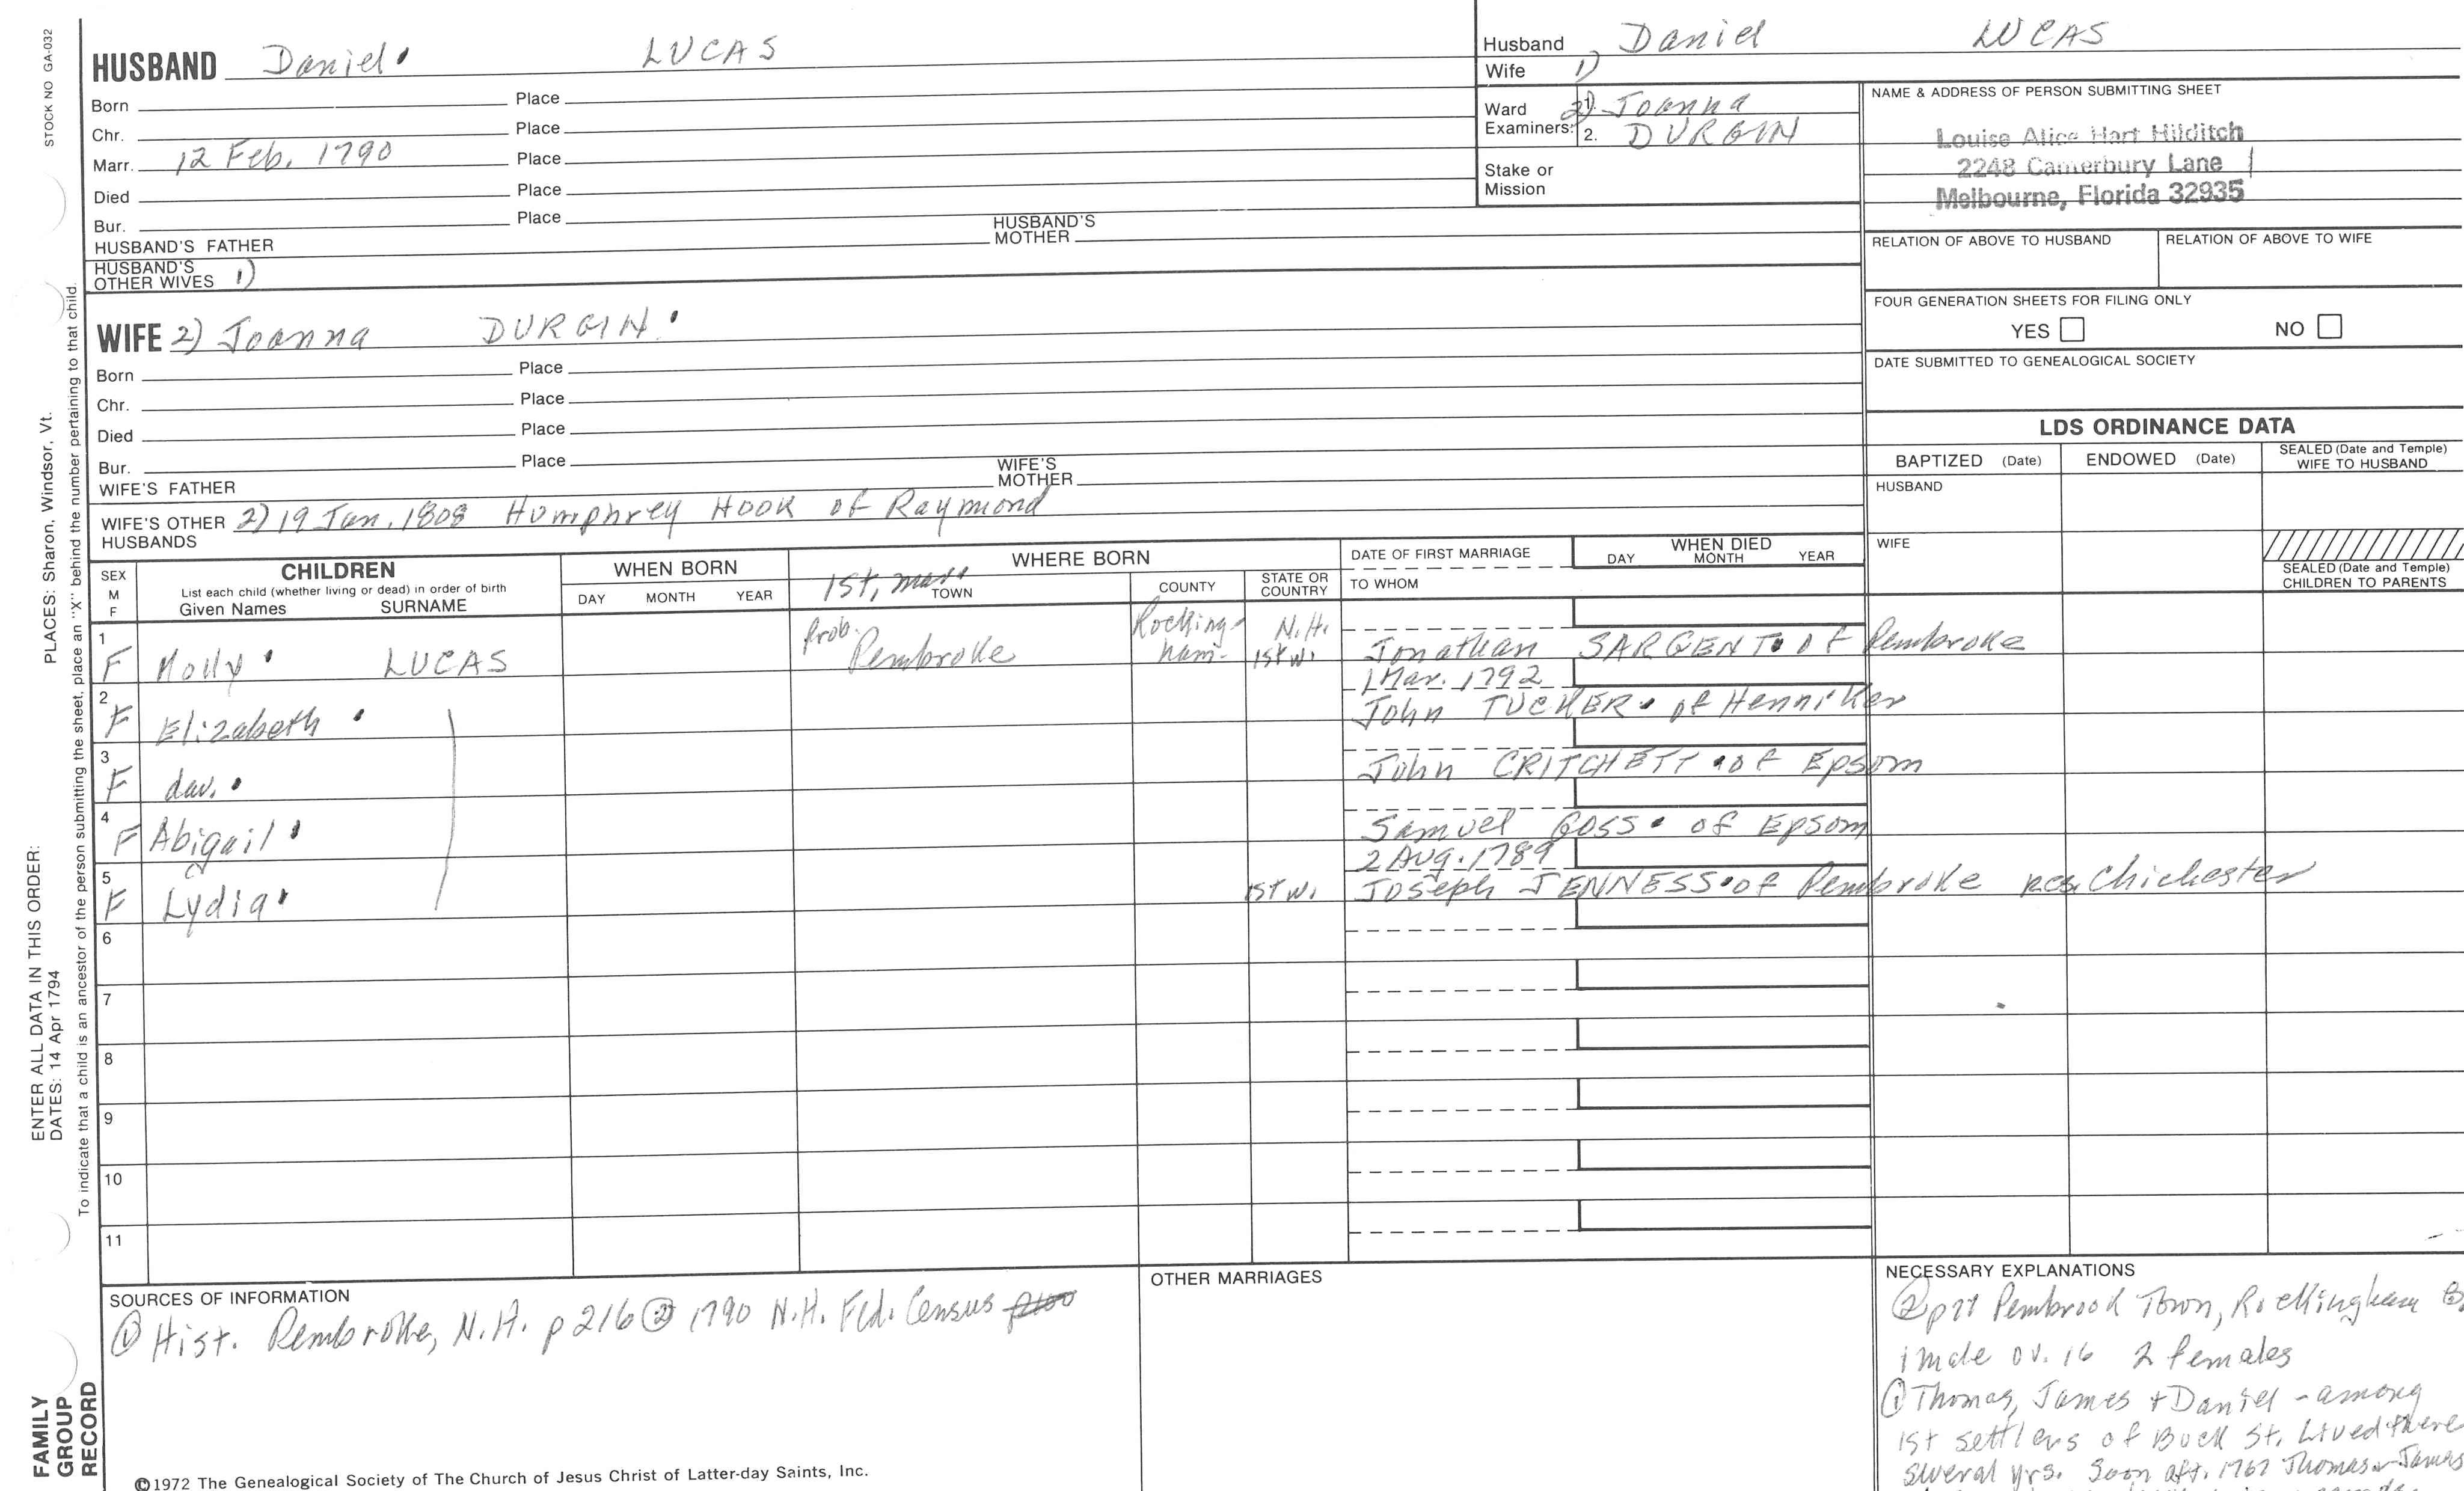 STOCK NO GA-032
PLACES: Sharon, Windsor, Vt.
ENTER ALL DATA IN THIS ORDER:
DATES: 14 Apr 1794
To indicate that a child is an ancestor of the person submitting the sheet, place an "X" behind the number pertaining to that child.
FAMILY
GROUP
RECORD
HUSBAND Daniel LUCAS
Born Place
Chr. Place
Marr. 12 Feb. 1790 Place
Died Place
Bur. Place
HUSBAND'S FATHER HUSBAND'S MOTHER
HUSBAND'S OTHER WIVES 1)
WIFE 2) Joanna DURGIN
Born Place
Chr. Place
Died Place
Bur. Place
WIFE'S FATHER WIFE'S MOTHER
WIFE'S OTHER HUSBANDS 2) 19 Jan. 1808 Humphrey HOOK of Raymond
Husband Daniel LUCAS
Wife 1)
Ward Examiners: 1. 2) Joanna
2. DURGIN
Stake or Mission
NAME & ADDRESS OF PERSON SUBMITTING SHEET
Louise Alice Hart Hilditch
2248 Canterbury Lane
Melbourne, Florida 32935
RELATION OF ABOVE TO HUSBAND RELATION OF ABOVE TO WIFE
FOUR GENERATION SHEETS FOR FILING ONLY
YES NO
DATE SUBMITTED TO GENEALOGICAL SOCIETY
LDS ORDINANCE DATA
BAPTIZED (Date) ENDOWED (Date) SEALED (Date and Temple) WIFE TO HUSBAND
HUSBAND
WIFE
SEALED (Date and Temple) CHILDREN TO PARENTS
SEX M F
CHILDREN
List each child (whether living or dead) in order of birth
Given Names SURNAME
WHEN BORN
DAY MONTH YEAR
WHERE BORN
1st, marr TOWN COUNTY STATE OR COUNTRY
DATE OF FIRST MARRIAGE
TO WHOM
WHEN DIED
DAY MONTH YEAR
1 F Molly LUCAS prob. Pembroke Rockingham N.H. 1st w. Jonathan SARGENT of Pembroke
1 Mar. 1792
2 F Elizabeth John TUCKER of Henniker
3 F dau. John CRITCHETT of Epsom
4 F Abigail Samuel GOSS of Epsom
2 Aug. 1789
5 F Lydia 1st w. Joseph JENNESS of Pembroke res. Chichester
6
7
8
9
10
11
SOURCES OF INFORMATION
① Hist. Pembroke, N.H. p 216 ② 1790 N.H. Fed. Census
OTHER MARRIAGES
NECESSARY EXPLANATIONS
② Pembrook Town, Rockingham
1 male ov. 16 2 females
① Thomas, James + Daniel - among
1st settlers of Buck St. Lived there
several yrs. Soon aft. 1767 Thomas James
©1972 The Genealogical Society of The Church of Jesus Christ of Latter-day Saints, Inc.